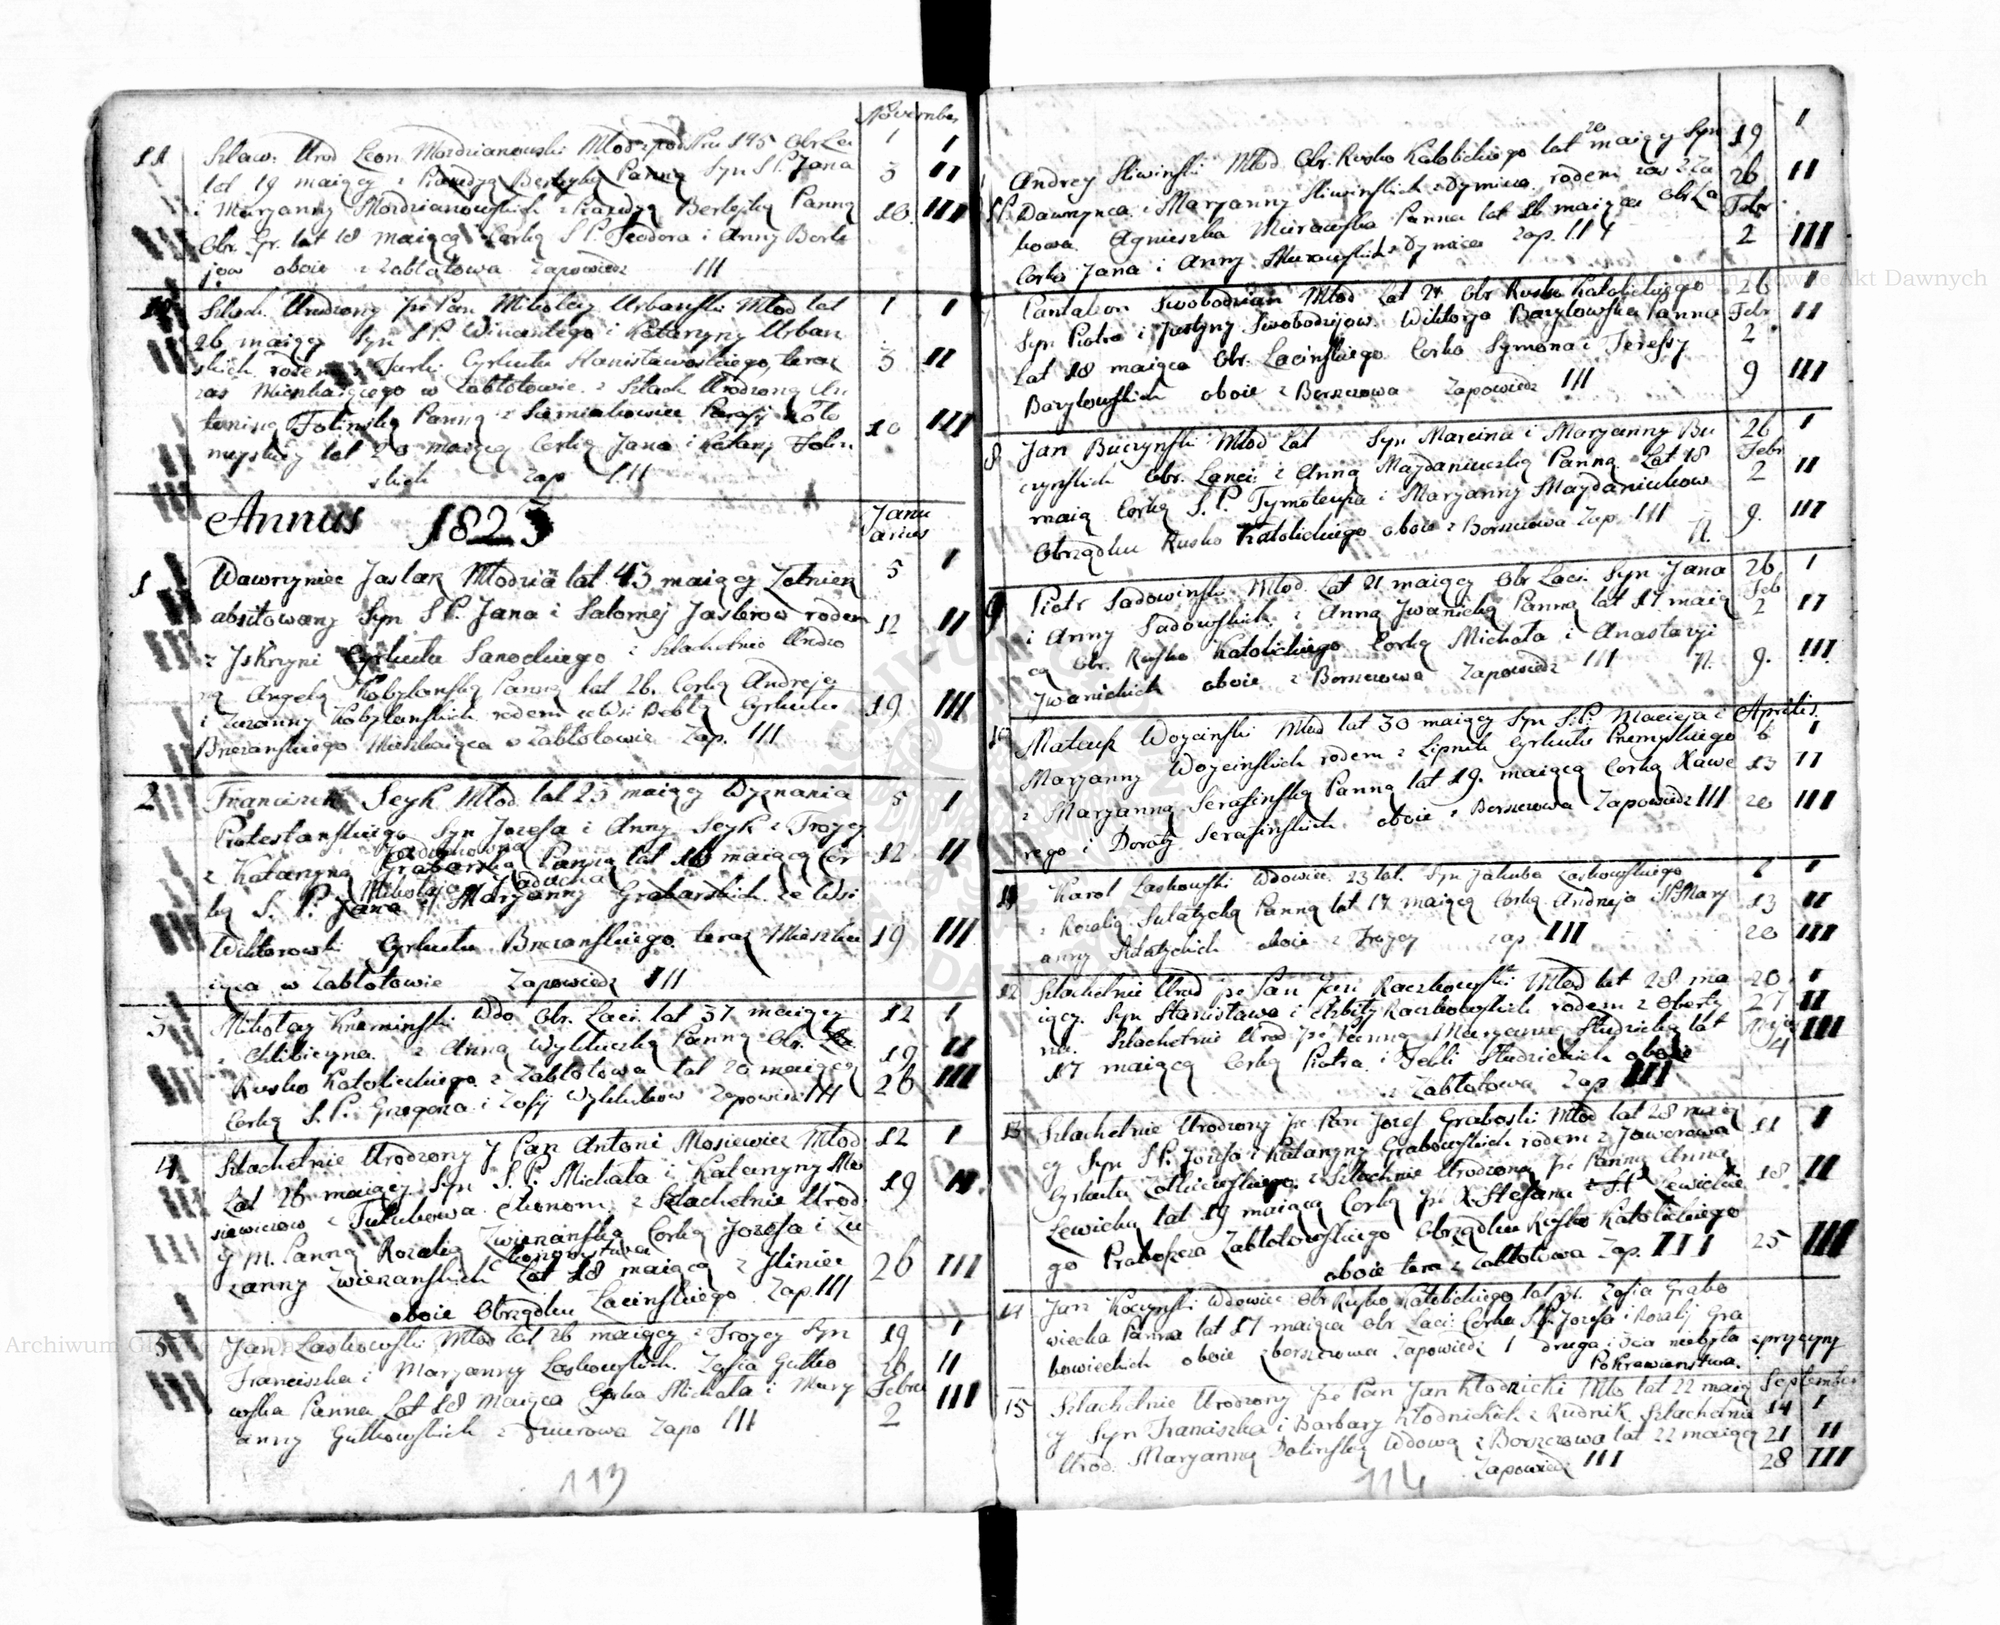 November
11 Szlaw: Urod Leon Mordzianowski Młod z pod Nru 195 Obr Łaci 1 I
lat 19 maiący z Panną Syn S.P. Jana 3 II
i Maryanny Mordzianowskich Panną 10 III
Obr. Gr. lat 18 maiącą Corką S.P. Teodora i Anny Berle
jow oboie z Zabłotowa Zapowiedz III
Szlach. Urodzony Jpe Pan Mikołay Urbański Młod lat 1 I
26 maiący Syn S.P. Wincentego i Katarzyny Urban
skich rodem z Turki Cyrkułu Stanisławoskiego, teraz 3 II
zas Mieszkaiącego w Zabłotowie z Szlach Urodzoną An
toniną Folinską Panną z Siemiakowiec Parafij Koło 10 III
myjskiey lat 20 maiącą Corką Jana i Katarz Folin
skich Zap III
Annus 1823 Janu
arius
1 Wawrzyniec Jaslar Młodzian lat 43 maiący Zołnierz 5 I
absitowany Syn S.P. Jana i Salomej Jaslerow rodem 12 II
z Jskryni Cyrkułu Sanockiego z Szlachetnie Urodzo
ną Angelą Kobylanską Panną lat 26. Corką Andrzeja
i Zuzanny Kobylanskich rodem ze Wsi Cyrkułu 19 III
Brzezanskiego Mieszkaiąca w Zabłotowie Zap. III
2 Franciszek Seyk Młod. lat 23 maiący Wyznania 5 I
Protestanskiego Syn Jozefa i Anny Seyk z Troycy
z Katarzyną Grabarską Panną lat 16 maiącą Cor 12 II
Mikołaja
ką S.P. Jana i Maryanny Grabarskich ze Wsi
Wiktorowki Cyrkułu Brzezanskiego teraz Mieszka 19 III
iąca w Zabłotowie Zapowiedz III
3 Mikołay Krzeminski Wdo Obr. Łaci. lat 37 maiący 12 I
z Chlibiczyna z Anną Wyklucką Panną Obr. 19 II
Rusko Katolickiego z Zabłotowa lat 20 maiącą 26 III
Corką S.P. Grzegorza i Zofij Wyklukow Zapowiedz III
4 Szlachetnie Urodzony J Pan Antoni Mosiewicz Młod 12 I
Lat 26 maiący Syn S.P. Michała i Katarzyny Mo 19 II
siewiczow z Tułukowa Ekonom z Szlachetnie Urod
g M. Panną Rozalią Zwierzanską Corką Jozefa i Zu
zanny Zwierzanskich Lat 18 maiącą z Jliniec 26 III
oboie Obrządku Łacinskiego Zap. III
5 Jan Laskowski Młod lat 26 maiący z Troycy Syn 19 I
Franciszka i Maryanny Laskowskich. Zofia Gutko 26 II
wska Panna Lat 18 Maiąca Corka Michała i Mary Febru III
anny Gutkowskich z Zapo III 2
113
Andrey Sliwinski Młod Obr. Rusko Katolickiego lat 20 maiący Syn 19 I
Dawrynca i Maryanny Sliwinskich z Dymicza rodem zas z Za 26 II
kowa Agnieszka Murawska Panna lat 16 maiąca Obr Ła Febr
Corka Jana i Anny Murawskich z Dymicza Zap. III 2 III
Pantalion Swobodzian Młod Lat 21 Obr Rusko Katolickiego 26 I
Syn Piotra i Justyny Swobodzijow Wiktorya Baryłowska Panna Febr II
Lat 18 maiąca Obr. Łacinskiego Corka Symona i Teressy 2
Baryłowskich oboie z Borszczowa Zapowiedz III 9 III
8 Jan Buczynski Młod Lat Syn Marcina i Maryanny Bu 26 I
czynskich Obr. Łaci: z Anną Maydaniucką Panną Lat 18 Febr
maią Corką S.P. Tymoteusza i Maryanny Maydaniukow 2 II
Obrządku Rusko Katolickiego oboie z Borszczowa Zap. III 9. III
9 Piotr Sadowinski Młod. Lat 21 maiący Obr Łaci. Syn Jana 26 I
i Anny Sadowskich z Anną Jwanicką Panną lat 17 maią Feb
cą Obr. Rusko Katolickiego Corką Michała i Anastazyi 2 II
Jwanickich oboie z Borszczowa Zapowiedz III 9. III
10 Mateusz Woycinski Młod lat 30 maiący Syn S.P. Macieja i Aprilis
Maryanny Woycinskich rodem z Lipnik Cyrkułu Przemyslkiego 6 I
z Maryanną Serafinską Panną lat 19. maiącą Corką Xawe 13 II
rego i Doroty Serafinskich oboie z Borszczowa Zapowiedz III 20 III
11 Karol Laskowski Wdowiec 23 lat. Syn Jakuba Laskowskiego 6 I
z Rozalią Sulatycką Panną lat 17 maiącą Corką Andrzeja i Mary 13 II
anny Sulatyckich oboie z Troycy zap III 20 III
12 Szlachetnie Urod Jpe Pan Jan Raczkowski Młod lat 28 ma 20 I
iący Syn Stanisława i Elzbity Raczkowskich rodem z Oberty 27 II
na. Szlachetnie Urod Jpe Panną Maryanną Studzicką lat Maja III
17 maiącą Corką Piotra i Tekli Studzickich oboie 4
z Zabłotowa Zap III
13 Szlachetnie Urodzony Jpe Pan Jozef Graboski Młod lat 28 maią I
cy Syn S.P. Jozefa i Katarzyny Grabowskich rodem z Jaworowa 11
Cyrkułu Zołkiewskiego z Szlachnie Urodzoną Jpe Panną Anną
Lewicką lat 19 maiącą Corką Jpe X. Stefana Lewickie 18 II
go Proboszcza Zabłotowskiego Obrządku Rusko Katolickiego
oboie tera z Zabłotowa Zap. III 25 III
14 Jan Koczynski Wdowiec Obr Rusko Katolickiego lat Zofia Grabo
wiecka Panna lat 17 maiąca Obr Łaci: Corka S.P. Jozefa i Rozalj Gra
bowieckich oboie z borszczowa Zapowiedz I druga i 3cia niebyła z przyczyny
Pokrewienstwa.
15 Szlachetnie Urodzony Jpe Pan Jan Kłodnicki Mło lat 22 maią September
cy Syn Franciszka i Barbary Kłodnickich z Rudnik Szlachetnie 14 I
Urod. Maryanną Dolinską Wdową z Borszczowa lat 22 maiącą 21 II
Zapowiedz III 28 III
114
Archiwum Główne Akt Dawnych